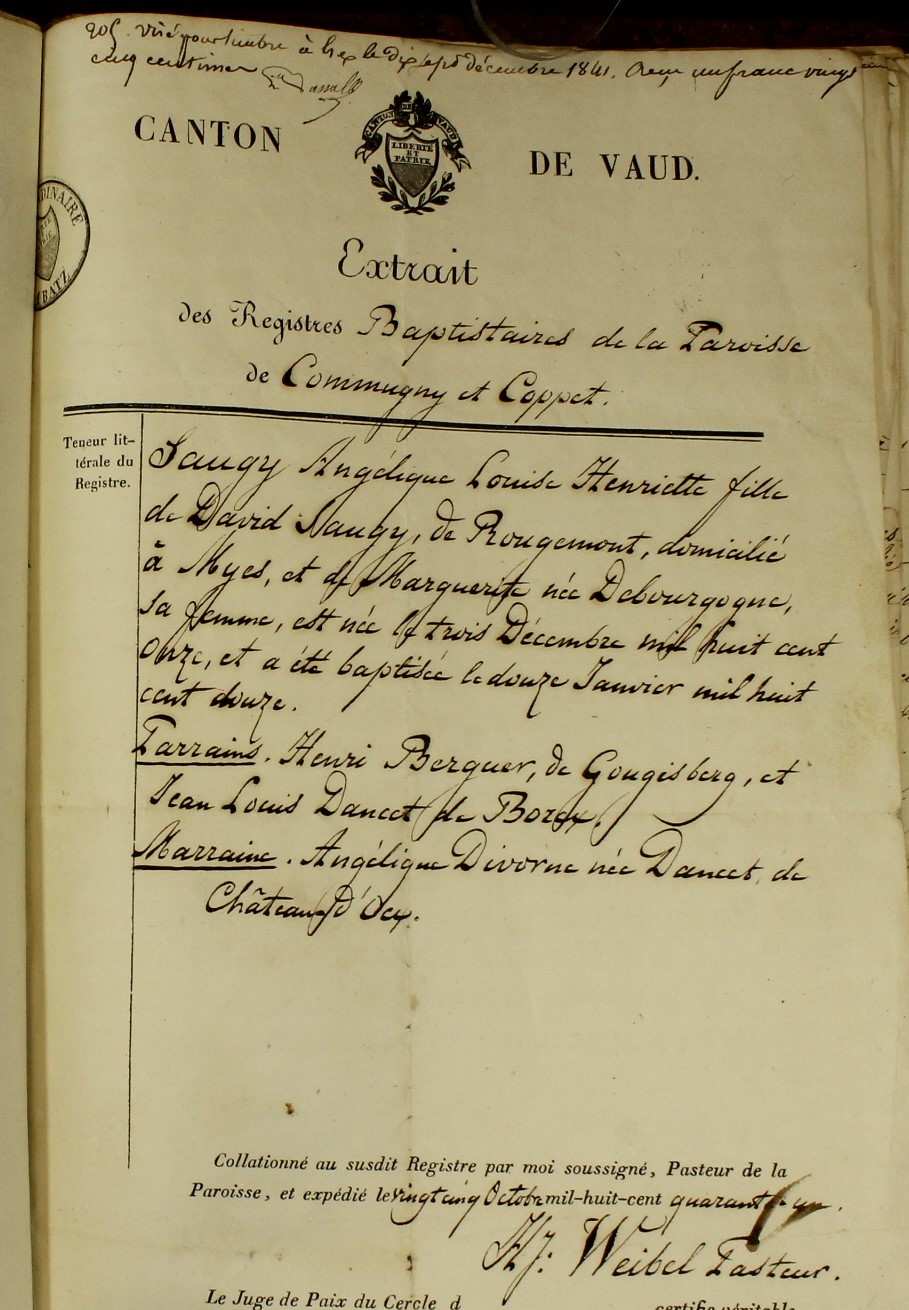 205. visé pour timbre à Gex le dix sept décembre 1841. Reçu un franc vingt
cinq centimes
CANTON DE VAUD.
CANTON DE VAUD
LIBERTÉ
ET
PATRIE
DINAIRE
BATZ
Extrait
des Registres Baptistaires de la Paroisse
de Commugny et Coppet.
Teneur lit-
térale du
Registre.
Saugy Angélique Louise Henriette fille
de David Saugy, de Rougemont, domicilié
à Myes, et de Marguerite née Debourgogne,
sa femme, est née le trois Décembre mil huit cent
onze, et a été baptisée le douze Janvier mil huit
cent douze.
Parrains. Henri Berguer, de Gougisberg, et
Jean Louis Dancet de Borex.
Marraine. Angélique Divorne née Dancet, de
Château d'Oex.
Collationné au susdit Registre par moi soussigné, Pasteur de la
Paroisse, et expédié le vingt cinq Octobre mil-huit-cent quarante un.
Weibel Pasteur.
Le Juge de Paix du Cercle d certifie véritable